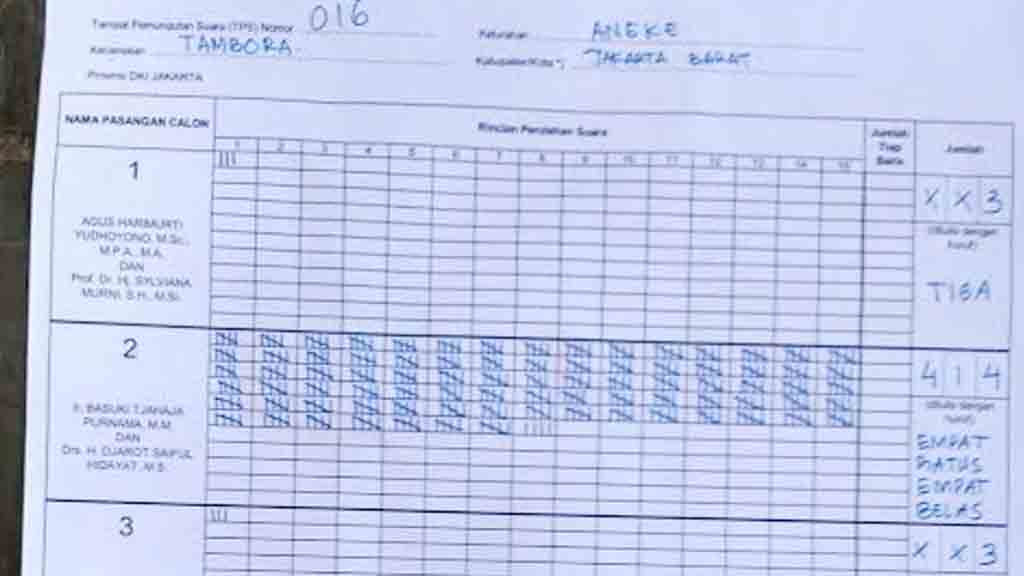 Tempat Pemungutan Suara (TPS) Nomor 016
Kelurahan ANEKE
Kecamatan TAMBORA
Kabupaten/Kota *) JAKARTA BARAT
Provinsi DKI JAKARTA
NAMA PASANGAN CALON
Rincian Perolehan Suara
Jumlah Tiap Baris
Jumlah
1 2 3 4 5 6 7 8 9 10 11 12 13 14 15
1
X X 3
(ditulis dengan huruf)
AGUS HARIMURTI
YUDHOYONO, M.Sc.,
M.P.A., M.A.
DAN
Prof. Dr. Hj. SYLVIANA
MURNI, S.H., M.Si.
TIGA
2
4 1 4
(ditulis dengan huruf)
Ir. BASUKI TJAHAJA
PURNAMA, M.M.
DAN
Drs. H. DJAROT SAIFUL
HIDAYAT, M.S.
EMPAT
RATUS
EMPAT
BELAS
3
X X 3